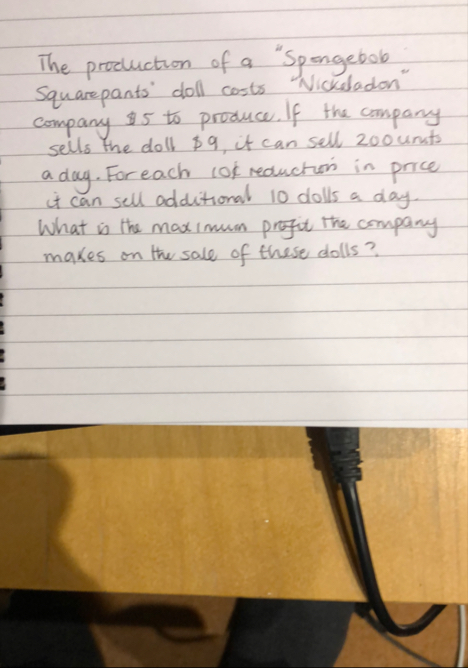 The production of a "Spongebob
Squarepants" doll costs "Nickeladon"
company $5 to produce. If the company
sells the doll $9, it can sell 200 units
a day. For each 10¢ reduction in price
it can sell additional 10 dolls a day.
What is the maximum profit the company
makes on the sale of these dolls?